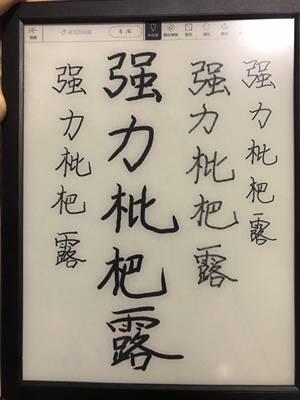 6 /6
强力枇杷露
强力枇杷露
强力枇杷露
强力枇杷露